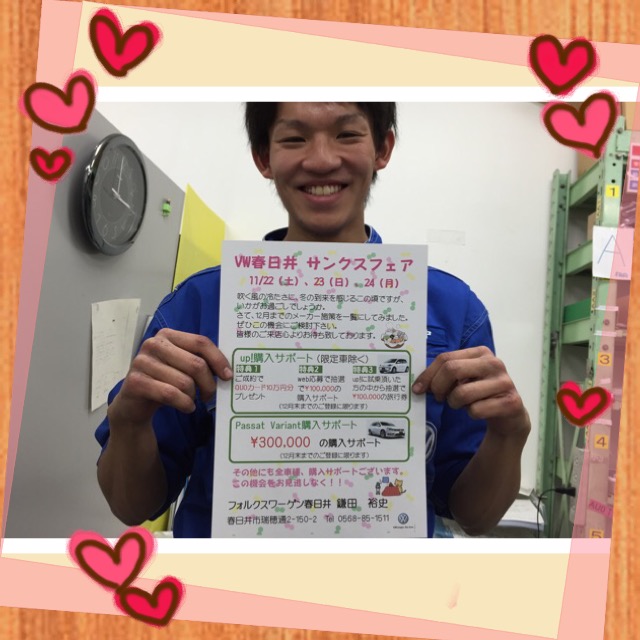 VW春日井 サンクスフェア
11/22（土）、23（日）、24（月）
吹く風の冷たさに、冬の到来を感じるこの頃ですが、
いかがお過ごしでしょうか。
さて、12月までのメーカー施策を一覧にしてみました。
ぜひこの機会にご検討下さい。
皆様のご来店心よりお待ち致しております。
up!購入サポート（限定車除く）
特典1 特典2 特典3
ご成約で web応募で抽選 up!に試乗頂いた
QUOカード10万円分 で¥100,000の 方の中から抽選で
プレゼント 購入サポート ¥100,000の旅行券
（12月末までのご登録に限ります）
Passat Variant購入サポート
¥300,000 の購入サポート
（12月末までのご登録に限ります）
その他にも全車種、購入サポートございます。
この機会をお見逃しなく！！
フォルクスワーゲン春日井 鎌田 裕史
春日井市瑞穂通2-150-2 Tel 0568-85-1511
A
1
3
4
5